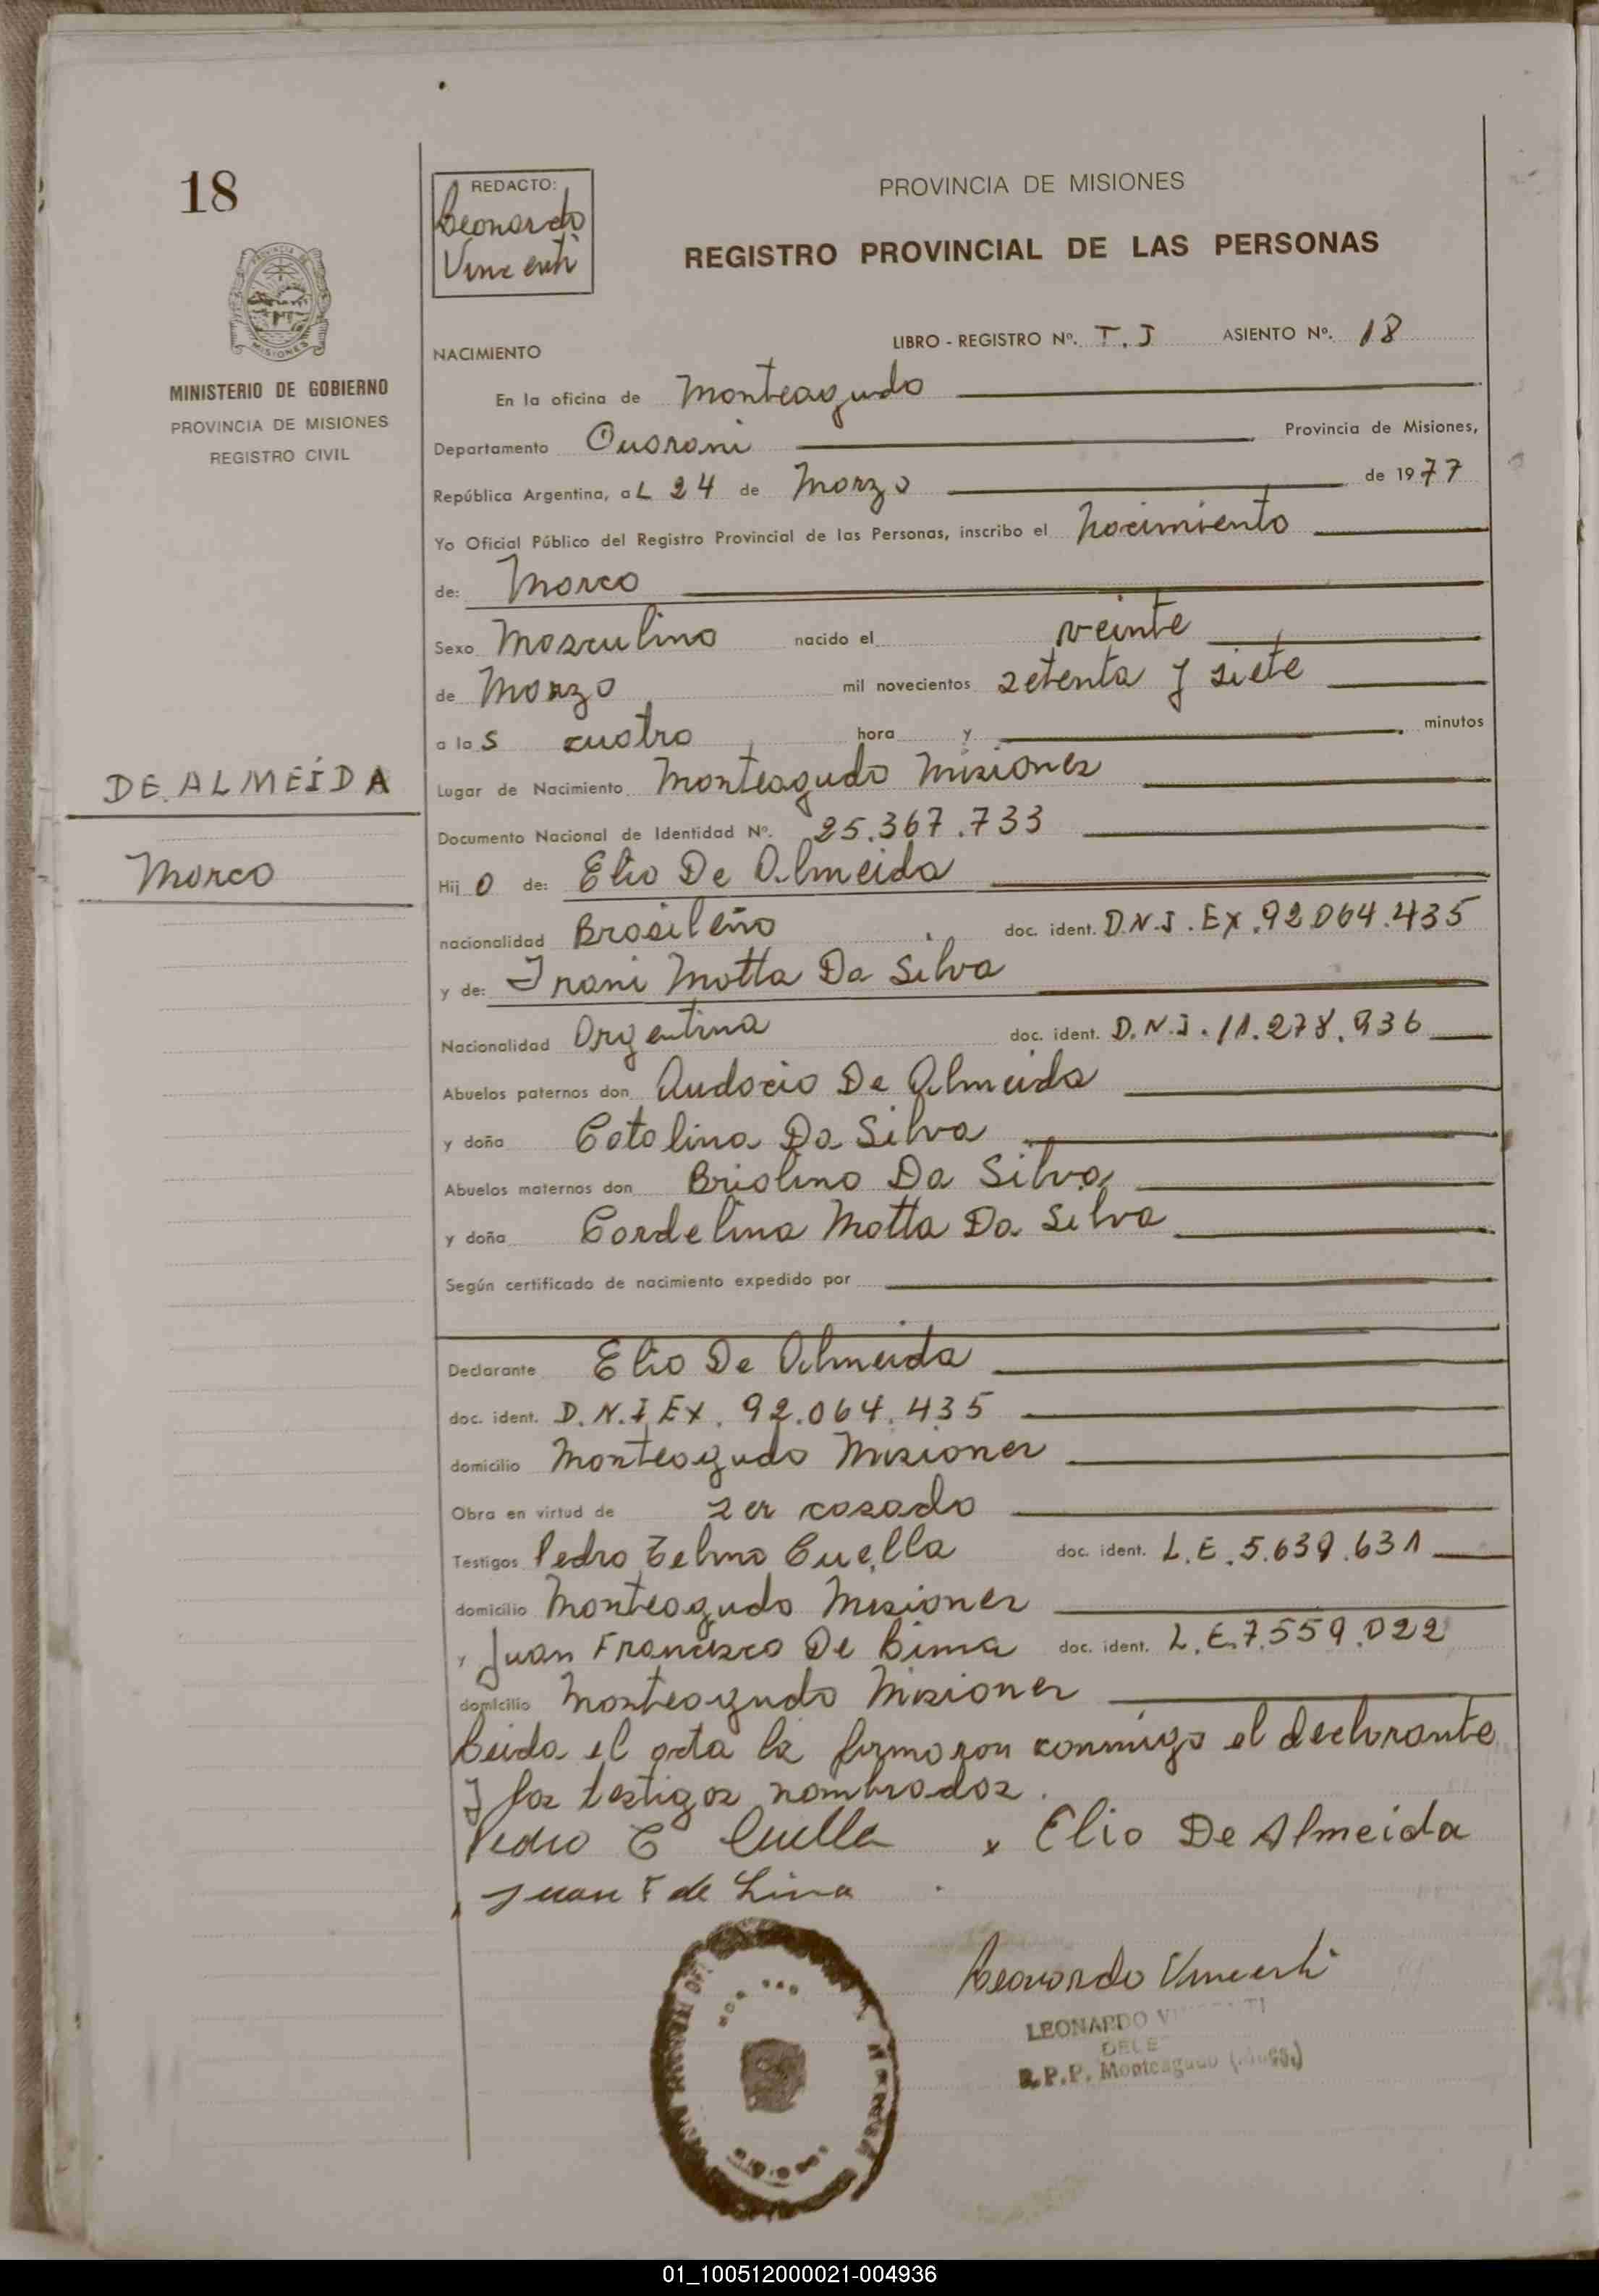 18
REDACTO:
Leonardo
Vincenti
PROVINCIA DE MISIONES
REGISTRO PROVINCIAL DE LAS PERSONAS
MISIONES
MINISTERIO DE GOBIERNO
PROVINCIA DE MISIONES
REGISTRO CIVIL
LIBRO - REGISTRO Nº. T.I ASIENTO Nº. 18
NACIMIENTO
En la oficina de Monteagudo
Departamento Guarani Provincia de Misiones,
República Argentina, a L 24 de Marzo de 1977
Yo Oficial Público del Registro Provincial de las Personas, inscribo el Nacimiento
de: Marco
Sexo Masculino nacido el veinte
de Marzo mil novecientos setenta y siete
a las cuatro hora y minutos
DE ALMEÍDA
Marco
Lugar de Nacimiento Monteagudo Misiones
Documento Nacional de Identidad Nº. 25.367.733
Hijo de: Elio De Almeida
nacionalidad Brasileño doc. ident. D.N.I. Ex. 92.064.435
y de: Irani Motta Da Silva
Nacionalidad Argentina doc. ident. D.N.I. 11.278.936
Abuelos paternos don De Almeida
y doña Catalina Da Silva
Abuelos maternos don Briolino Da Silva
y doña Cordelina Motta Da Silva
Según certificado de nacimiento expedido por
Declarante Elio De Almeida
doc. ident. D.N.I. Ex. 92.064.435
domicilio Monteagudo Misiones
Obra en virtud de ser casado
Testigos Pedro Telmo Cuella doc. ident. L.E. 5.639.631
domicilio Monteagudo Misiones
y Juan Francisco De Lima doc. ident. L.E. 7.559.022
domicilio Monteagudo Misiones
Leida el acta la firmaron conmigo el declarante
y los testigos nombrados.
Pedro T Cuella x Elio De Almeida
Juan F de Lima
Leonardo Vincenti
LEONARDO
R.P.P. Monteagudo
01_100512000021-004936